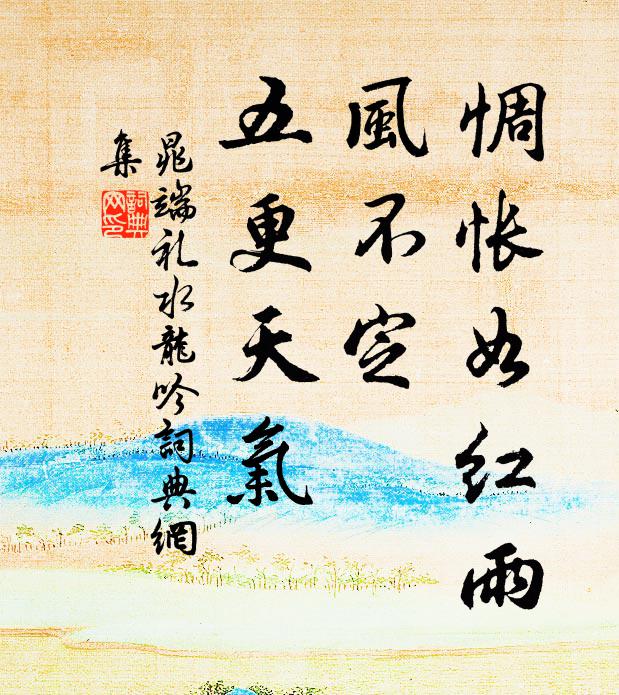 惆怅如红雨
風不定
五更天氣
晁端礼水龍吟詞典網
集
詞典
网印